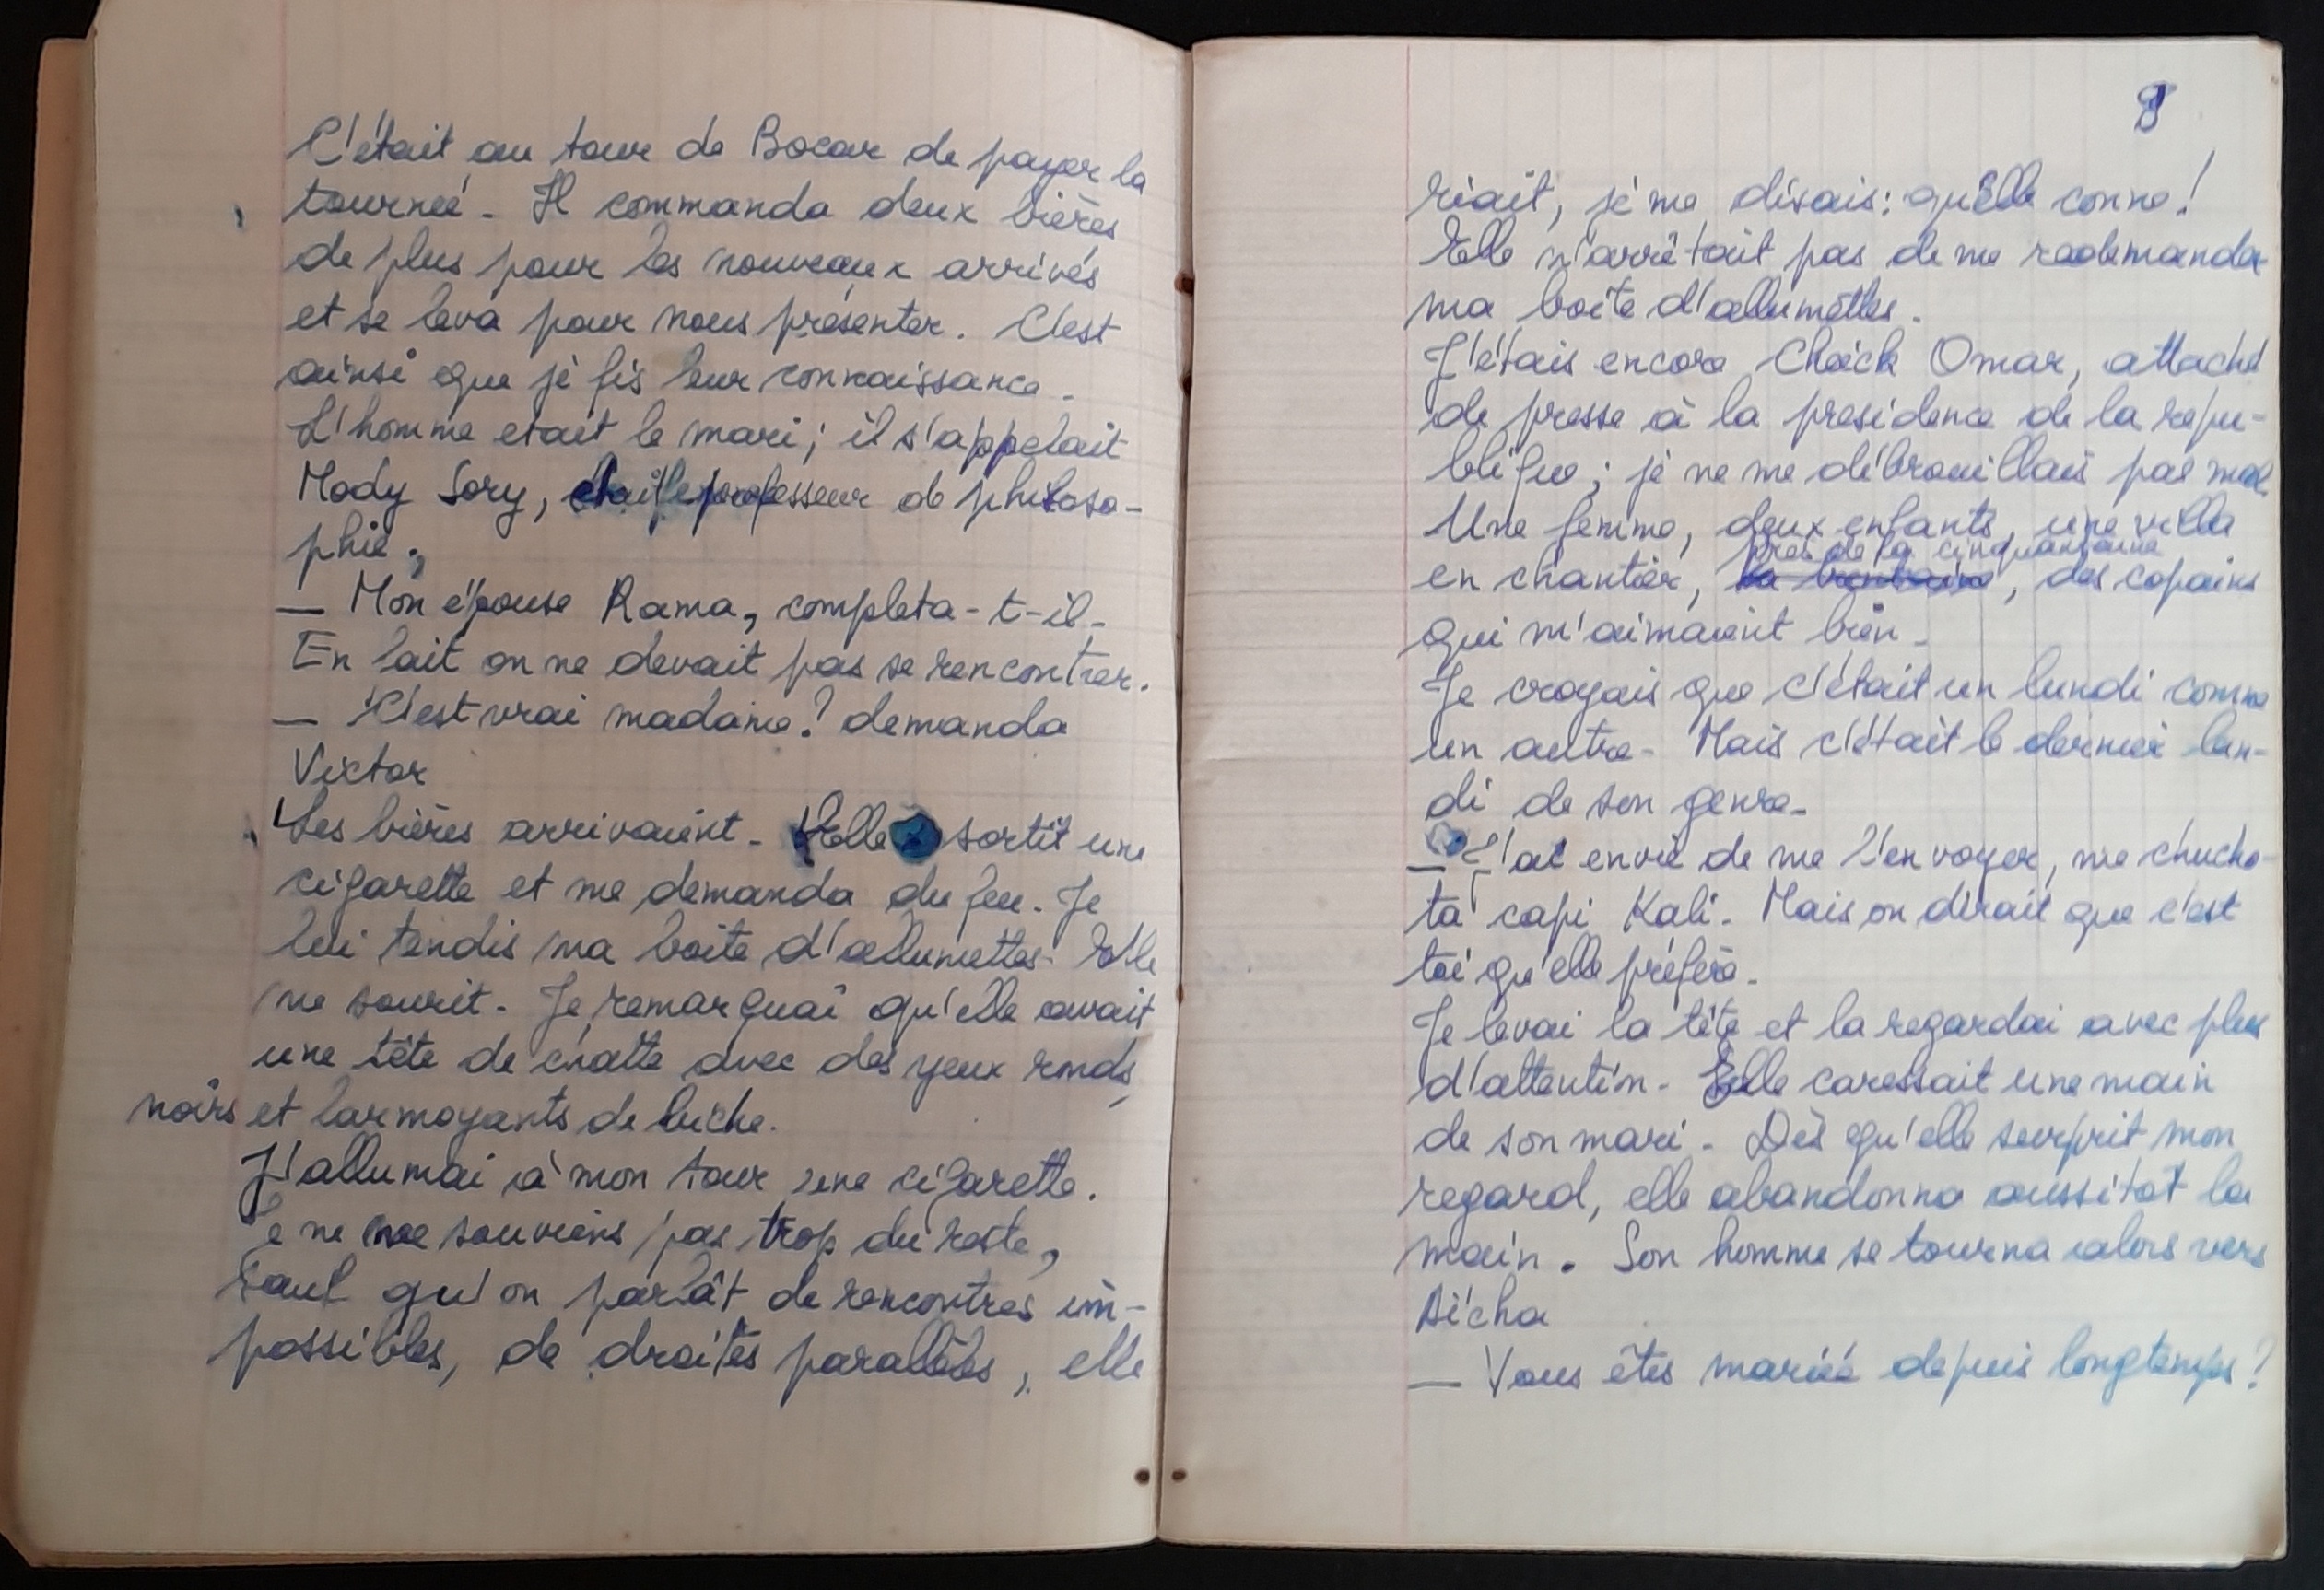 C'était au tour de Bocar de payer la
tourneé. Il commanda deux bières
de plus pour les nouveaux arrivés
et se leva pour nous présenter. C'est
ainsi que je fis leur connaissance.
L'homme etait le mari; il s'appelait
Mody Sory, professeur de philoso-
phie.,
— Mon épouse Rama, completa-t-il.
En fait on ne devait pas se rencontrer.
— C'est vrai madame? demanda
Victor
Les bières arrivaient. Elle sortit une
cigarette et me demanda du feu. Je
lui tendis ma boite d'allumettes. Elle
me sourit. Je remarquai qu'elle avait
une tête de chatte avec des yeux ronds,
noirs et larmoyants de biche.
J'allumai à mon tour une cigarette.
Je ne me souviens pas trop du reste,
sauf qu'on parlât de rencontres im-
possibles, de droites parallèles, elle
8
riait, je me disais: qu'Elle conne!
Elle n'arrêtait pas de me redemander
ma boîte d'allumettes.
J'étais encore Cheick Omar, attaché
de presse à la presidence de la repu-
blique; je ne me débrouillais pas mal
Une femme, deux enfants, une villa
près de la cinquantaine
en chantier, la trentaine, des copains
qui m'aimaient bien.
Je croyais que c'était un lundi comme
un autre. Mais c'était le dernier lun-
di de son genre.
— J'ai envie de me l'envoyer, me chucho-
ta capi Kali. Mais on dirait que c'est
toi qu'elle préfère.
Je levai la tête et la regardai avec plus
d'attention. Elle caressait une main
de son mari. Dès qu'elle surprit mon
regard, elle abandonna aussitot la
main. Son homme se tourna alors vers
Aïcha
— Vous êtes mariée depuis longtemps?